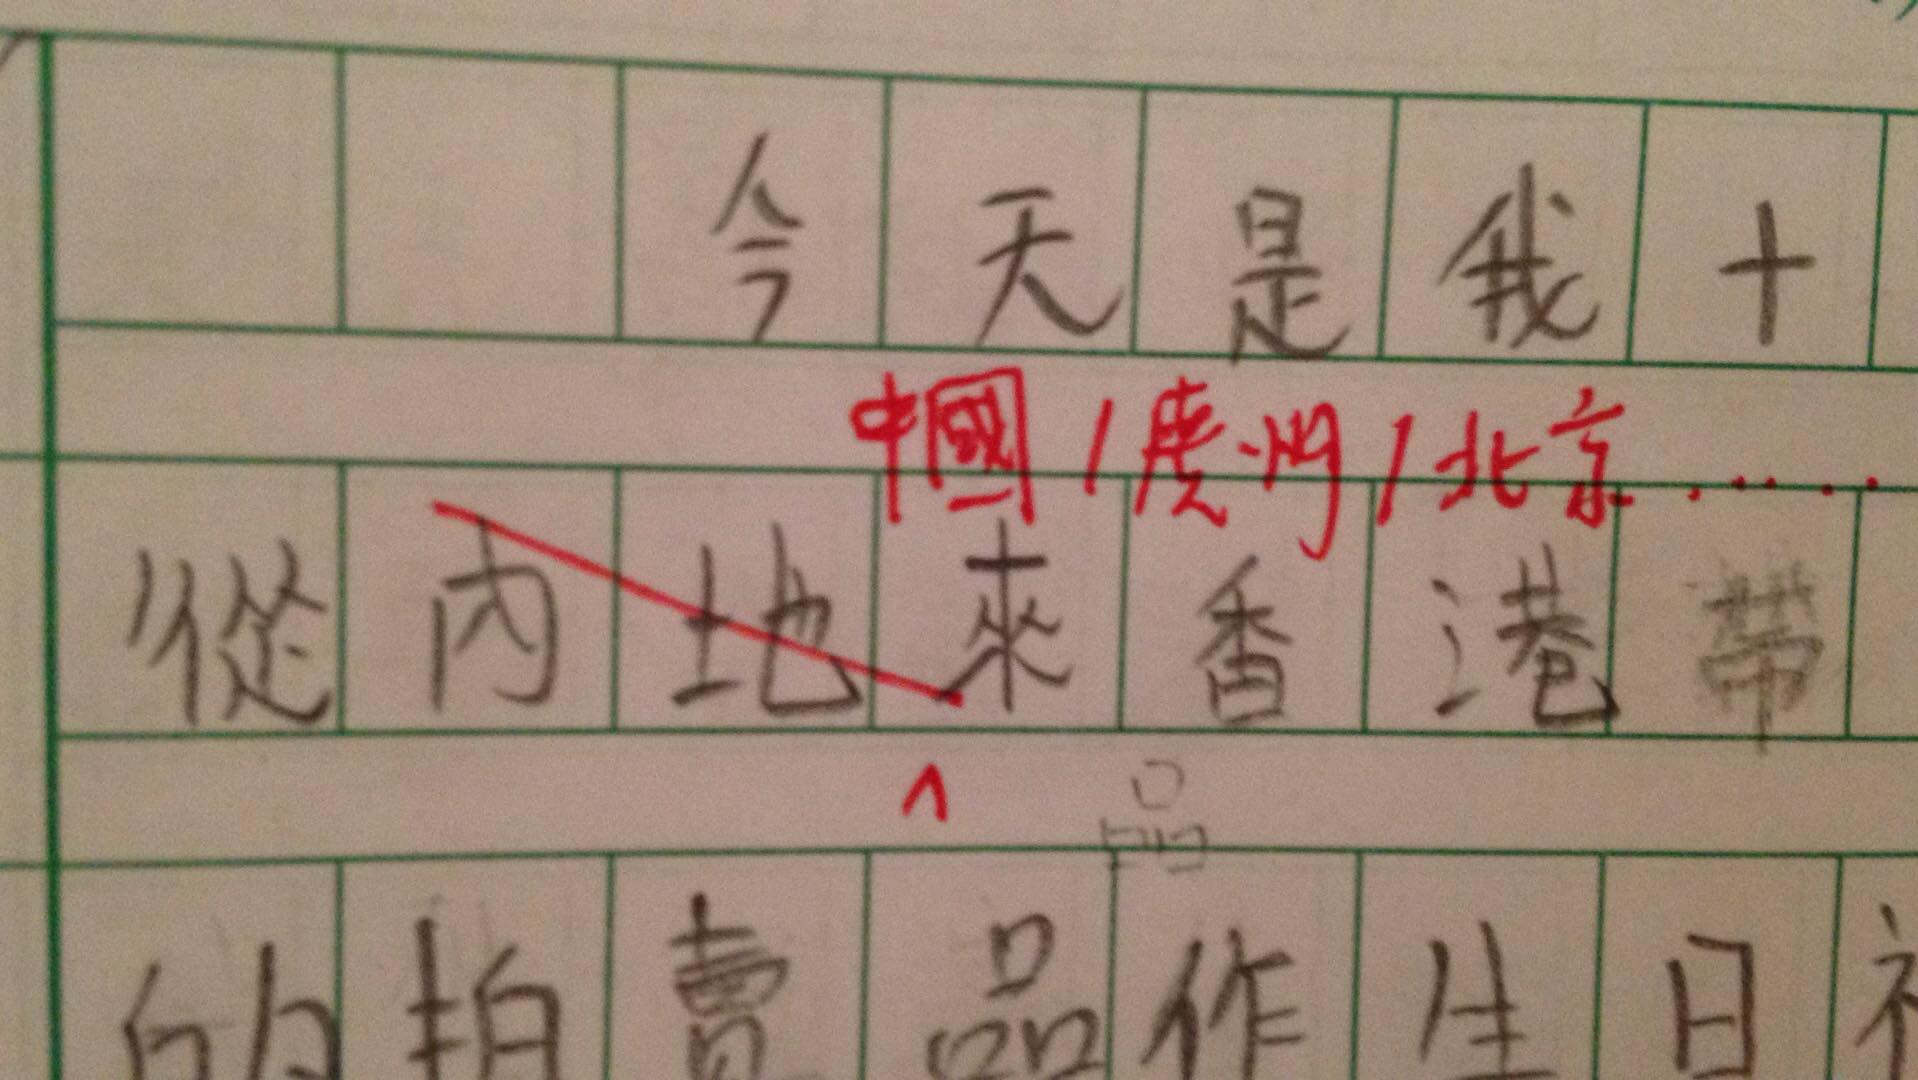 今天是我十
中國/廣州/北京......
從內地來香港帶
^
品
的拍賣品作生日